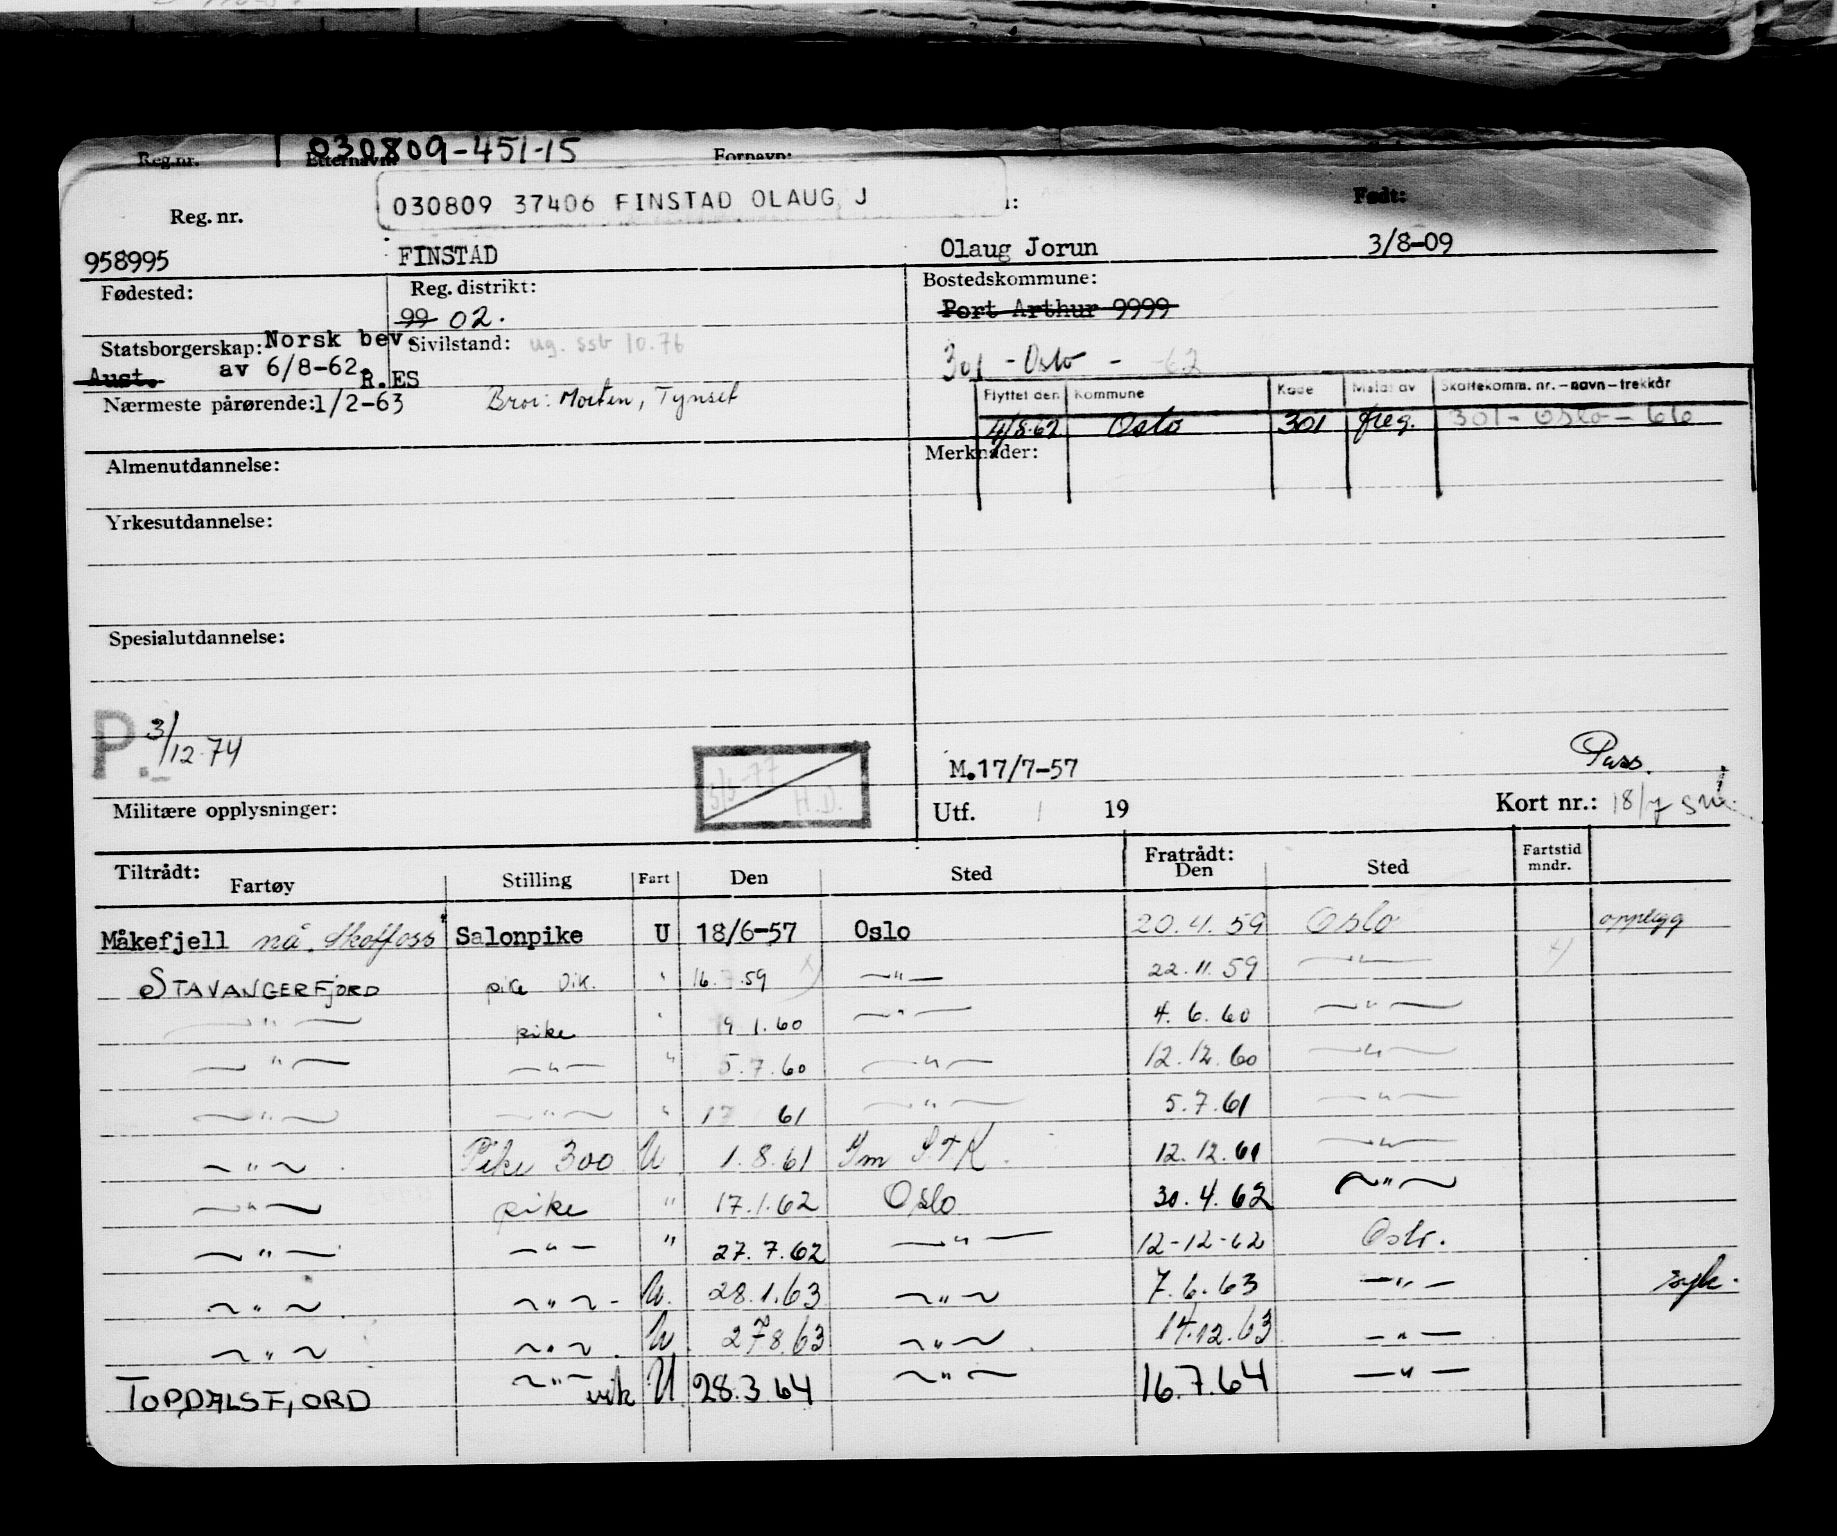 Reg.nr. 030809-451-15 Etternavn: Fornavn:
030809 37406 FINSTAD OLAUG J
Reg. nr. Født:
958995 FINSTAD Olaug Jorun 3/8-09
Fødested: Reg. distrikt: Bostedskommune:
99 02. Port Arthur 9999
Statsborgerskap: Norsk bev. Sivilstand: ug. ssb 10.76
Aust. av 6/8-62. R.ES 301 - Oslo - -62
Nærmeste pårørende: 1/2-63 Bror: Morten, Tynset
Flyttet den Kommune Kode Melat av Skattekomm. nr. - navn - trekkår
4/8-62 Oslo 301 freg. 301 - Oslo - 66
Almenutdannelse: Merknader:
Yrkesutdannelse:
Spesialutdannelse:
P. 3/12.74
5/5-77 H.D.
M.17/7-57 Pass.
Militære opplysninger: Utf. 19 Kort nr.: 18/7
Tiltrådt: Fratrådt:
Fartøy Stilling Fart Den Sted Den Sted Fartstid mndr.
Måkefjell nå. Skotfoss Salonpike U 18/6-57 Oslo 20.4.59 Oslo opplegg
STAVANGERFJORD pike vik. " 16. .59 —"— 22.11.59 —"—
—"— pike " 19 1.60 —"— 4.6.60 —"—
—"— —"— " 5.7.60 —"— 12.12.60 —"—
—"— —"— " 17 61 —"— 5.7.61 —"—
—"— Pike 300 U 1.8.61 12.12.61 —"—
—"— pike " 17.1.62 Oslo 30.4.62 —"—
—"— —"— " 27.7.62 —"— 12-12-62 Oslo.
—"— —"— U. 28.1.63 —"— 7.6.63 —"— syk.
—"— —"— U. 27 8.63 —"— 14.12.63 —"—
TOPDALSFJORD —"— vik U 28.3.64 —"— 16.7.64 —"—